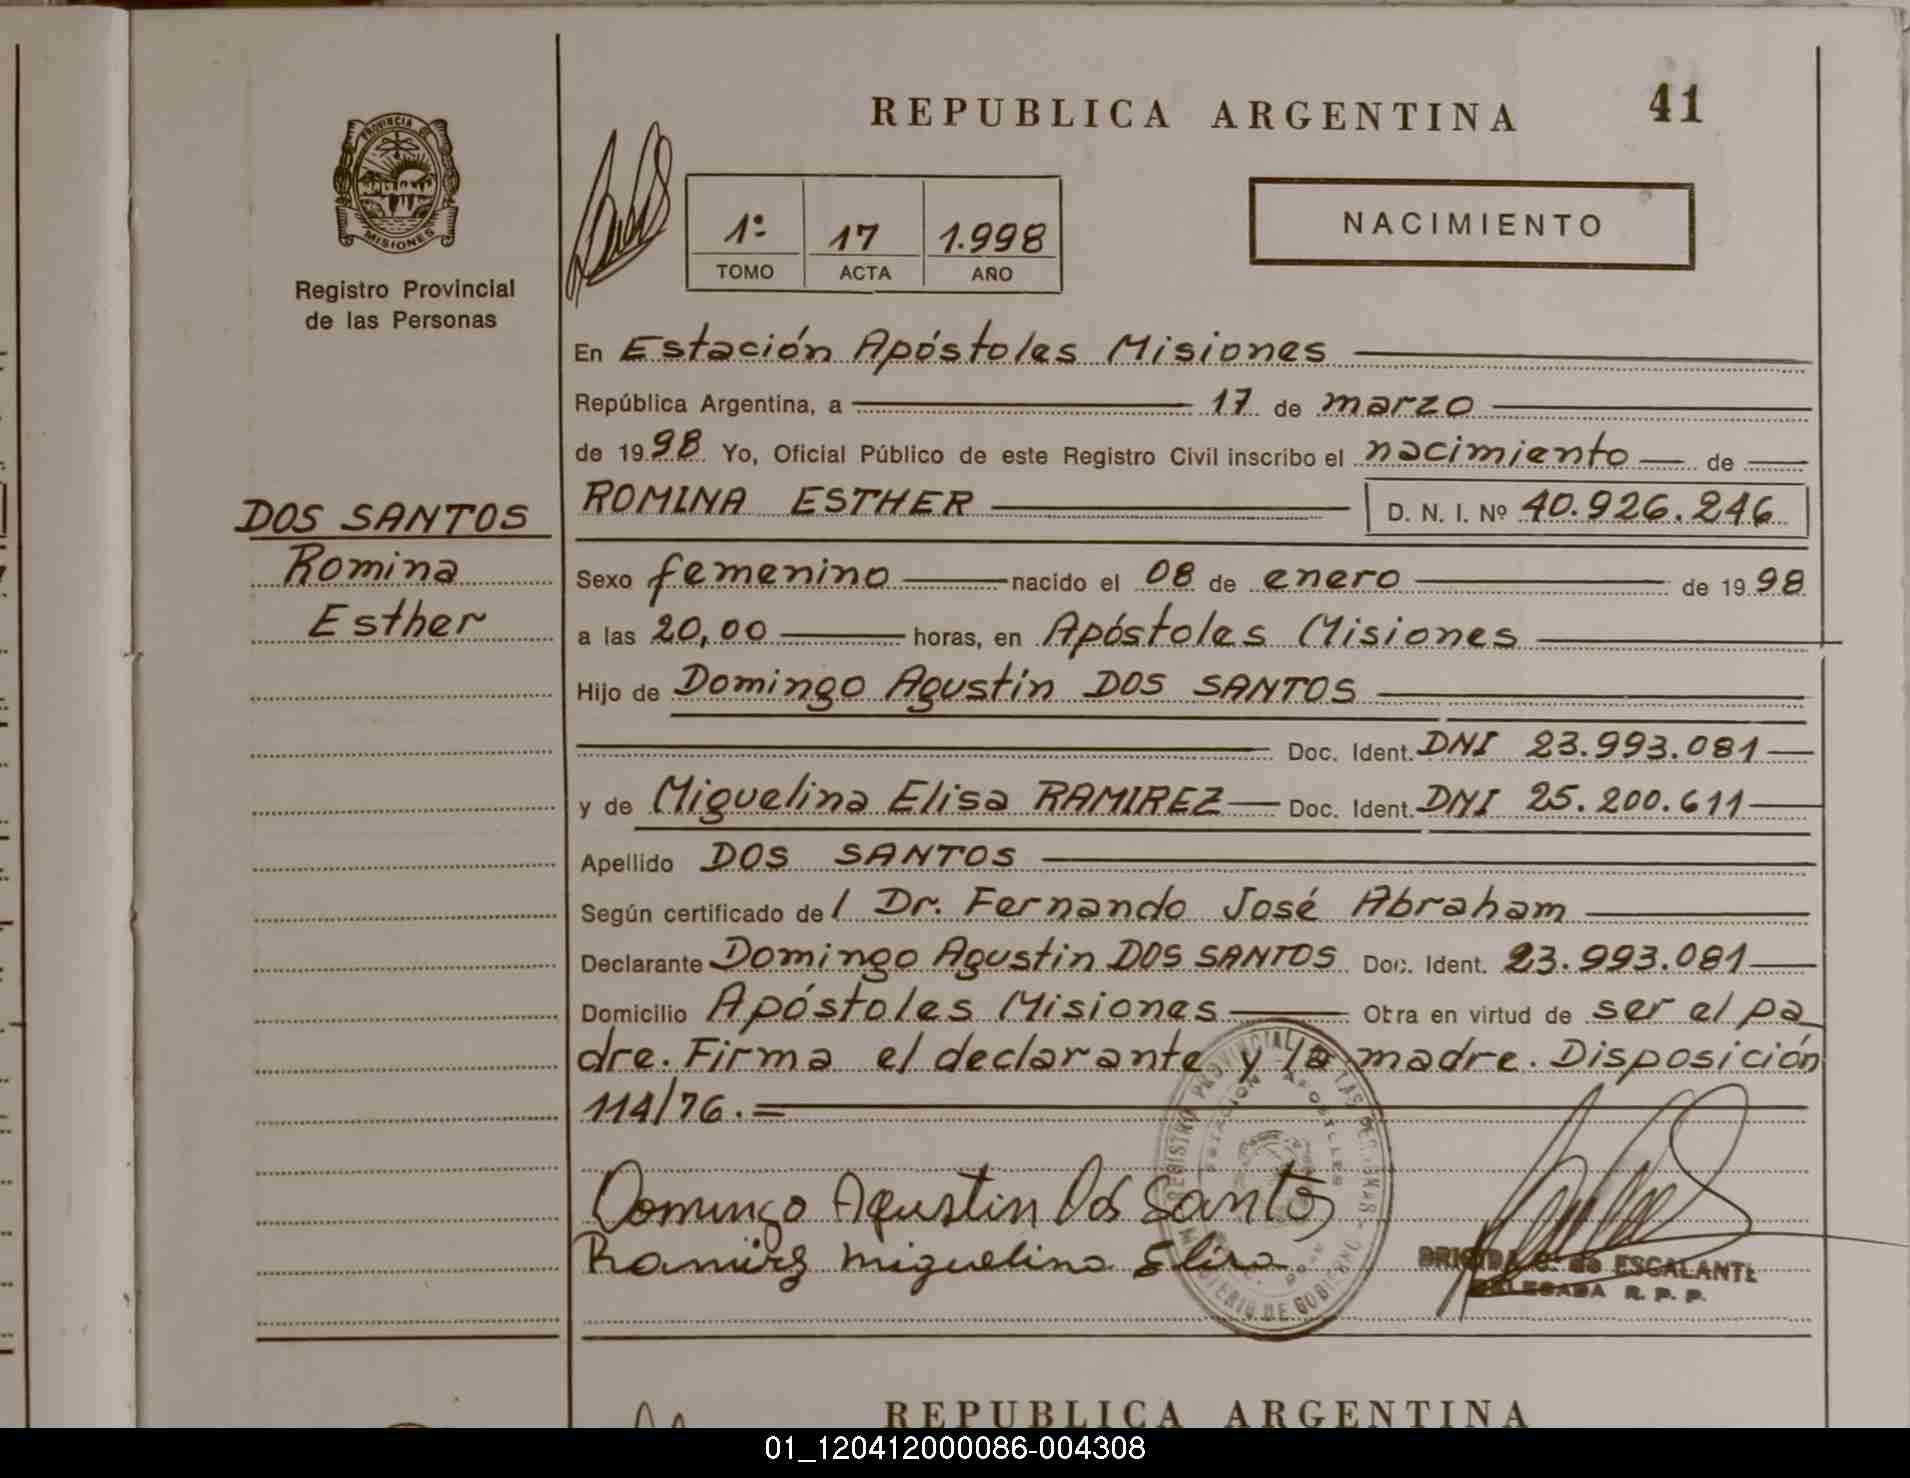 REPUBLICA ARGENTINA
41
PROVINCIA DE
MISIONES
Registro Provincial
de las Personas
1º 17 1.998
TOMO ACTA AÑO
NACIMIENTO
En Estación Apóstoles Misiones
República Argentina, a 17 de marzo
de 1998 Yo, Oficial Público de este Registro Civil inscribo el nacimiento de
ROMINA ESTHER D. N. I. Nº 40.926.246
DOS SANTOS
Romina
Esther
Sexo femenino nacido el 08 de enero de 1998
a las 20,00 horas, en Apóstoles Misiones
Hijo de Domingo Agustin DOS SANTOS
Doc. Ident. DNI 23.993.081
y de Miguelina Elisa RAMIREZ Doc. Ident. DNI 25.200.611
Apellido DOS SANTOS
Según certificado del Dr. Fernando José Abraham
Declarante Domingo Agustin DOS SANTOS Doc. Ident. 23.993.081
Domicilio Apóstoles Misiones Otra en virtud de ser el pa
dre. Firma el declarante y la madre. Disposición
114/76.=
Domingo Agustin Dos Santos
Ramirez Miguelina Elisa
REGISTRO PROVINCIAL DE LAS PERSONAS
ESTACION APOSTOLES
MINISTERIO DE GOBIERNO
BRIGIDA de ESCALANTE
DELEGADA R. P. P.
REPUBLICA ARGENTINA
01_120412000086-004308